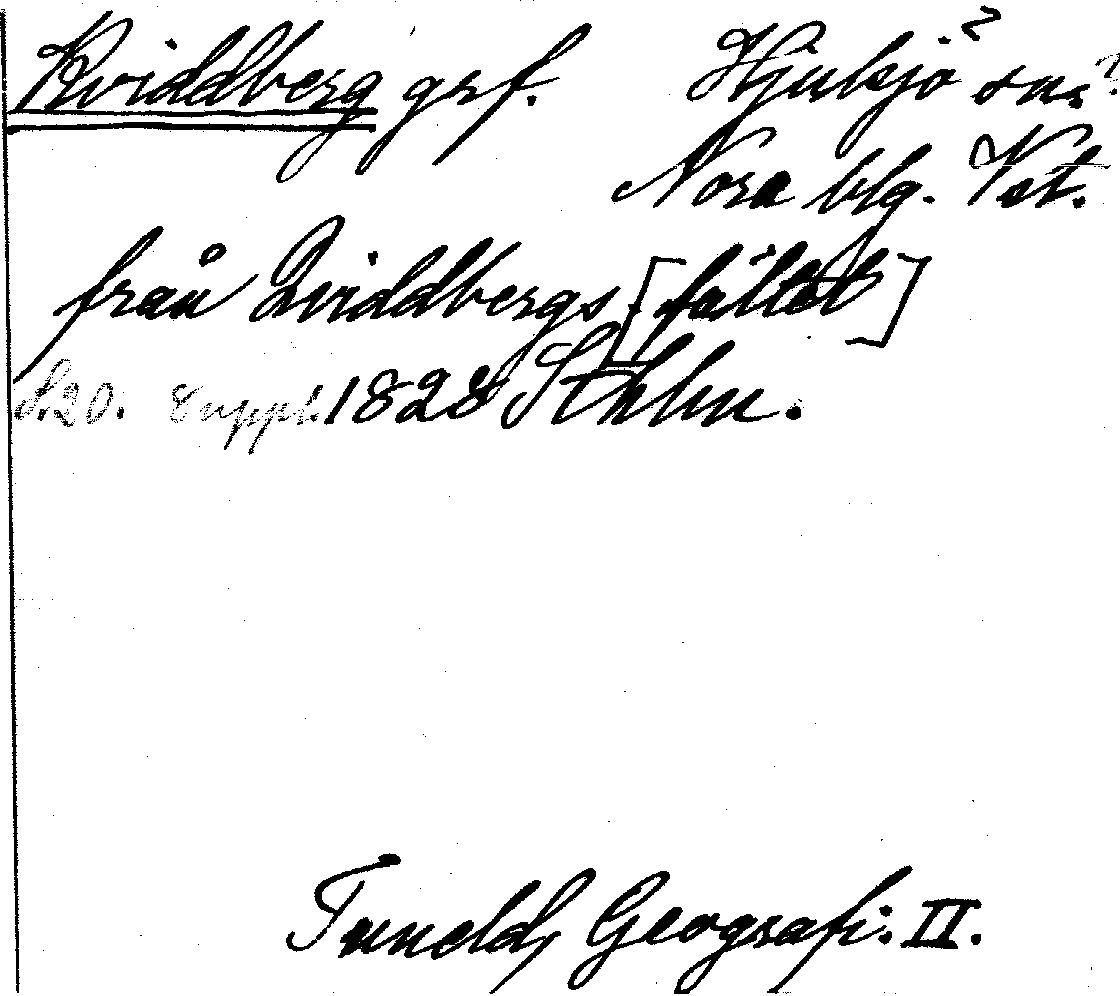 Kviddberg grf. Hjulsjö? sns?
Nora blg. Vst.
från Qviddbergs [fältet]
S.20. Suppl. 1828 Sthlm.
Tuneld, Geografi. II.